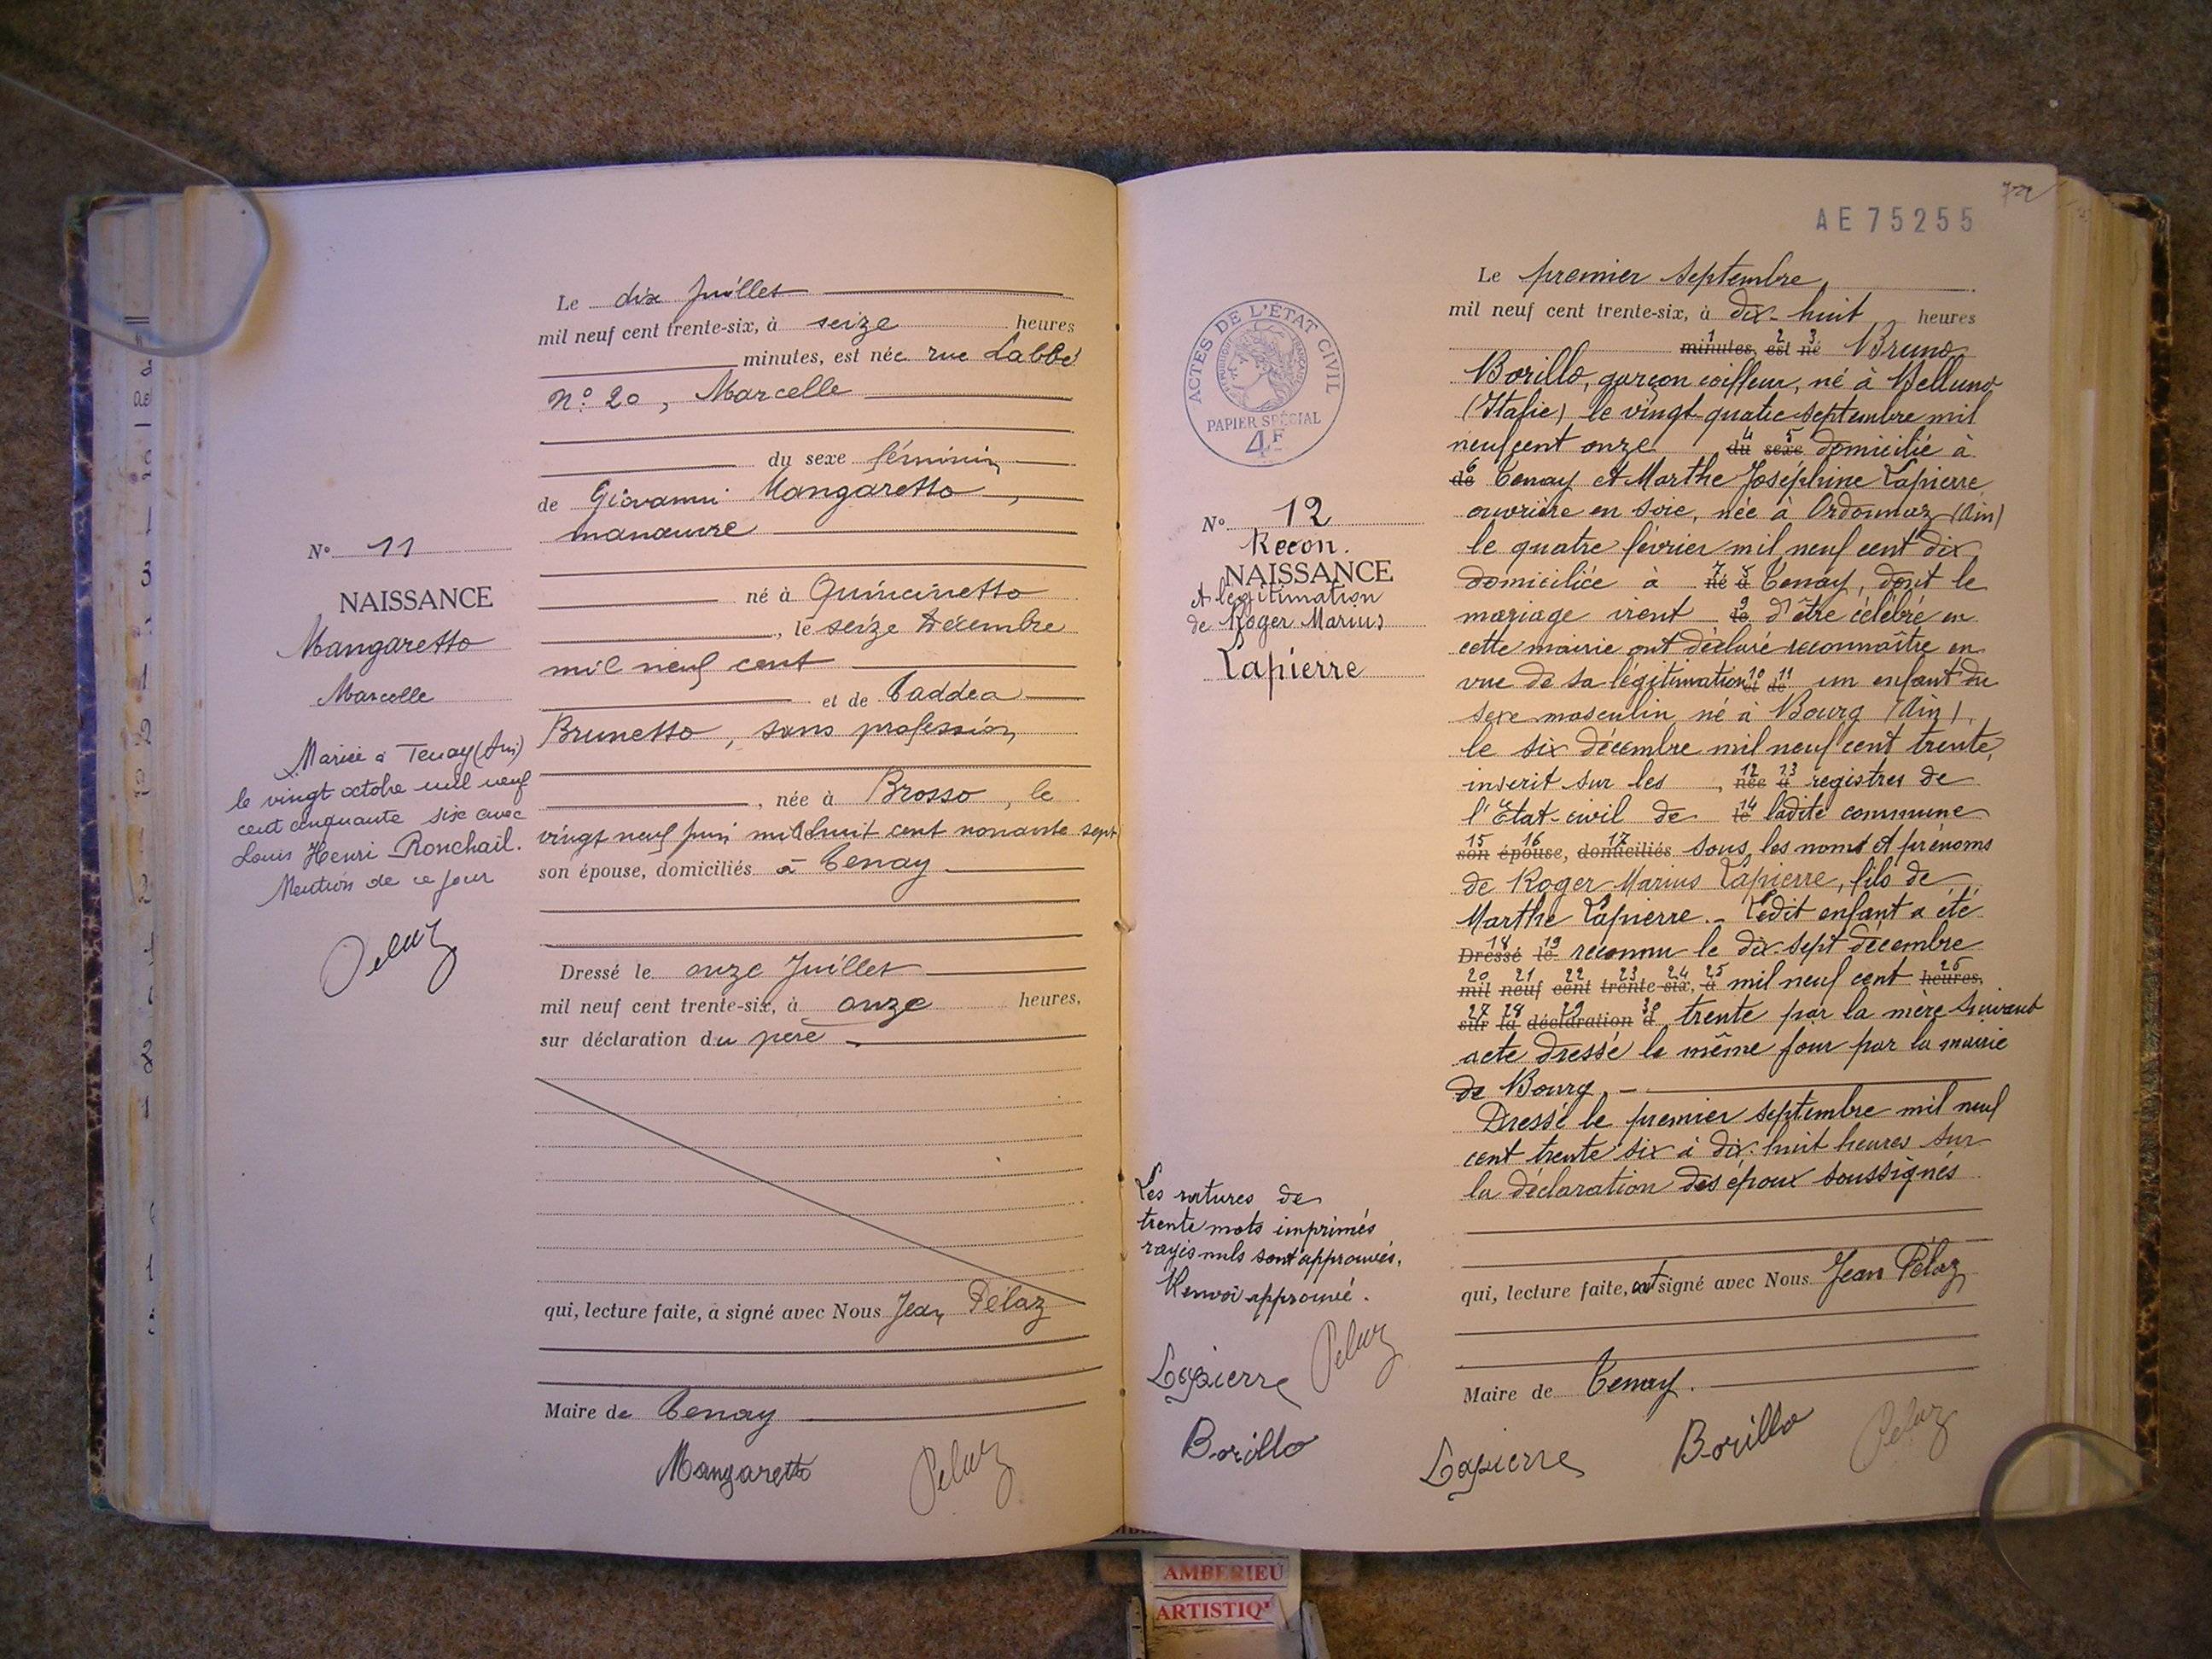 Le dix Juillet
mil neuf cent trente-six, à seize heures
minutes, est née rue Labbé
N° 20, Marcelle
du sexe féminin
de Giovanni Mangaretto,
manœuvre
né à Quincinetto
, le seize Décembre
mil neuf cent
et de Taddea
Brunetto, sans profession
, née à Brosso, le
vingt neuf juin mil huit cent nonante sept
son épouse, domiciliés à Tenay
Dressé le onze Juillet
mil neuf cent trente-six, à onze heures,
sur déclaration du père
qui, lecture faite, a signé avec Nous Jean Pélaz
Maire de Tenay
Mangaretto Pelaz
N° 11
NAISSANCE
Mangaretto
Marcelle
Mariée à Tenay (Ain)
le vingt octobre mil neuf
cent cinquante six avec
Louis Henri Ronchail.
Mention de ce jour
Pelaz
AE75255
72
ACTES DE L'ÉTAT CIVIL
RÉPUBLIQUE FRANÇAISE
PAPIER SPÉCIAL
4F
N° 12
Recon.
NAISSANCE
et légitimation
de Roger Marius
Lapierre
Le premier septembre
mil neuf cent trente-six, à dix-huit heures
1 2 3
minutes, est né Bruno
Borillo, garçon coiffeur, né à Belluno
(Italie) le vingt-quatre septembre mil
4 5
neuf cent onze du sexe domicilié à
6
de Tenay et Marthe Joséphine Lapierre
ouvrière en soie, née à Ordonnaz (Ain)
le quatre février mil neuf cent dix
7 8
domiciliée à né à Tenay, dont le
9
mariage vient le d'être célébré en
cette mairie ont déclaré reconnaître en
10 11
vue de sa légitimation et de un enfant du
sexe masculin né à Bourg (Ain),
le six décembre mil neuf cent trente,
12 13
inscrit sur les , née à registres de
14
l'État-civil de le ladite commune
15 16 17
son épouse, domiciliés sous les noms et prénoms
de Roger Marius Lapierre, fils de
Marthe Lapierre. - Ledit enfant a été
18 19
Dressé le reconnu le dix-sept décembre
20 21 22 23 24 25 26
mil neuf cent trente-six, à mil neuf cent heures,
27 28 29 30
sur la déclaration d trente par la mère suivant
acte dressé le même jour par la mairie
de Bourg. -
Dressé le premier septembre mil neuf
cent trente six à dix-huit heures sur
la déclaration des époux soussignés
qui, lecture faite, ont signé avec Nous Jean Pélaz
Maire de Tenay.
Lapierre Borillo Pelaz
Les ratures de
trente mots imprimés
rayés nuls sont approuvés.
Renvoi approuvé.
Lapierre Pelaz
Borillo
AMBERIEU
ARTISTIQ